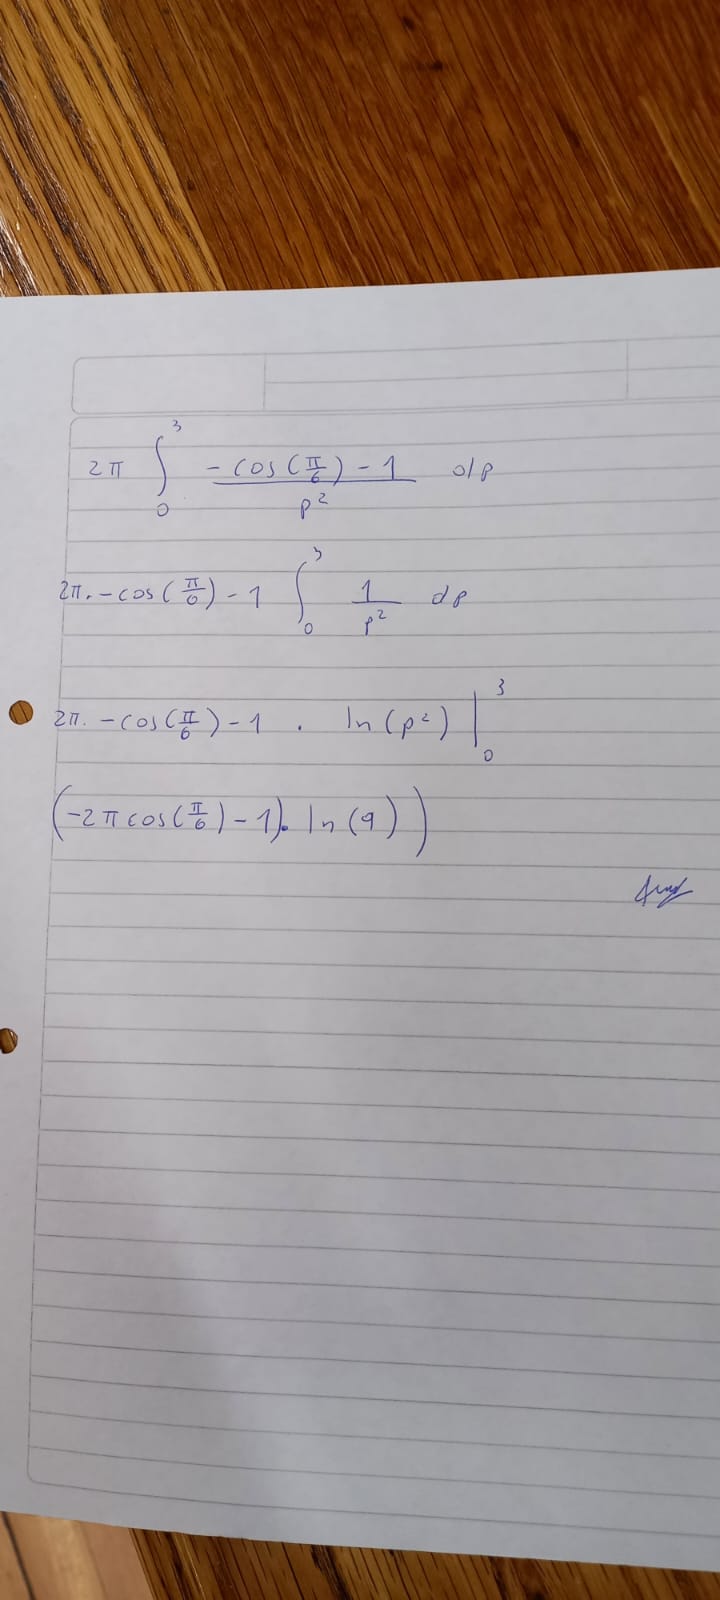 2π ∫₀³ (-cos(π/6) - 1)/p² dp
2π. -cos(π/6) - 1 ∫₀³ 1/p² dp
2π. -cos(π/6) - 1 . ln(p²) |₀³
(-2πcos(π/6) - 1). ln(9))